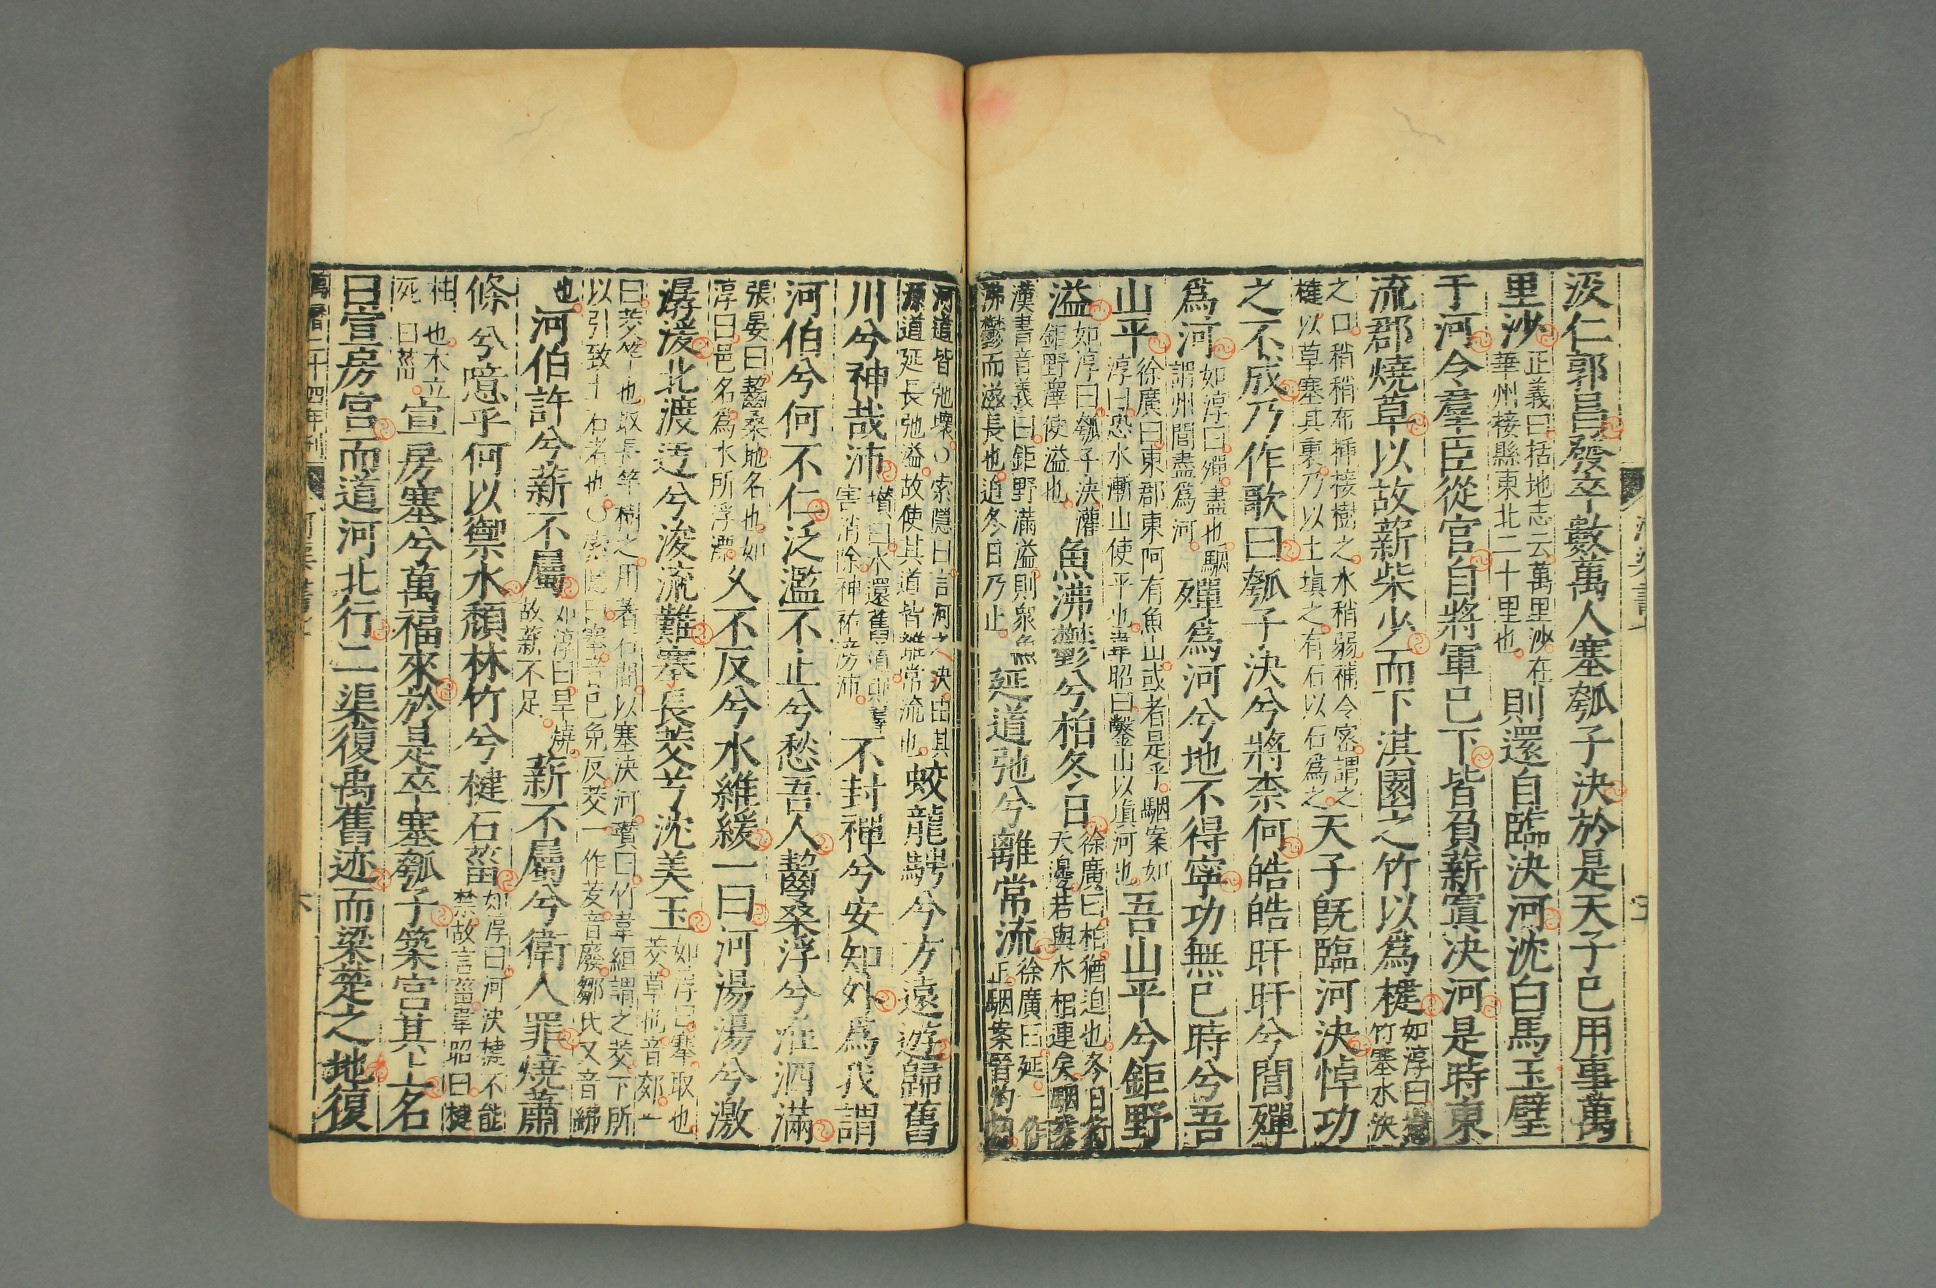 汲仁郭昌發卒數萬人塞瓠子決於是天子已用事萬
里沙正義曰括地志云萬里沙在華州接縣東北二十里也則還自臨決河沈白馬玉璧
于河令羣臣從官自將軍已下皆負薪窴决河是時東
流郡燒草以故薪柴少而下淇園之竹以爲楗如淳曰竹塞水決
之口稍稍布揷接樹之水稍弱補令密謂之楗以草塞其裏乃以土填之有石以石爲之天子旣臨河決悼功
之不成乃作歌曰瓠子決兮將柰何皓皓旰旰兮閭殫
爲河如淳曰殫盡也駰謂州閭盡爲河殫爲河兮地不得寧功無已時兮吾
山平徐廣曰東郡東阿有魚山或者是乎駰案如淳曰恐水漸山使平也韋昭曰鑿山以塡河也吾山平兮鉅野
溢如淳曰瓠子決灌鉅野澤使溢也魚沸鬱兮柏冬日徐廣曰柏猶迫也冬日行天邊若與水相連矣駰案
漢書音義曰鉅野滿溢則衆魚沸鬱而滋長也迫冬日乃止延道弛兮離常流徐廣曰延一作正駰案晉灼曰
河道皆弛壞○索隱曰言河之決由其源道延長弛溢故使其道皆離常流也蛟龍騁兮方遠遊歸舊
川兮神哉沛瓚曰水還舊道則羣害消除神祐滂沛不封禪兮安知外爲我謂
河伯兮何不仁泛濫不止兮愁吾人齧桑浮兮淮泗滿
張晏曰齧桑地名也如淳曰邑名爲水所浮漂乆不反兮水維緩一曰河湯湯兮激
潺湲北渡迃兮浚流難搴長茭兮沈美玉如淳曰搴取也茭草也音郊一
曰茭竿也取長竿樹之用著石間以塞決河瓚曰竹葦絙謂之茭下所以引致土石者也○索隱曰搴音已免反茭一作茇音廢鄒氏又音紼
也河伯許兮薪不屬如淳曰旱燒故薪不足薪不屬兮衛人罪燒蕭
條兮噫乎何以禦水頹林竹兮楗石菑如淳曰河決楗不能禁故言菑韋昭曰楗
柱也木立死曰菑宣房塞兮萬福來於是卒塞瓠子築宫其上名
曰宣房宫而道河北行二渠復禹舊迹而梁楚之地復